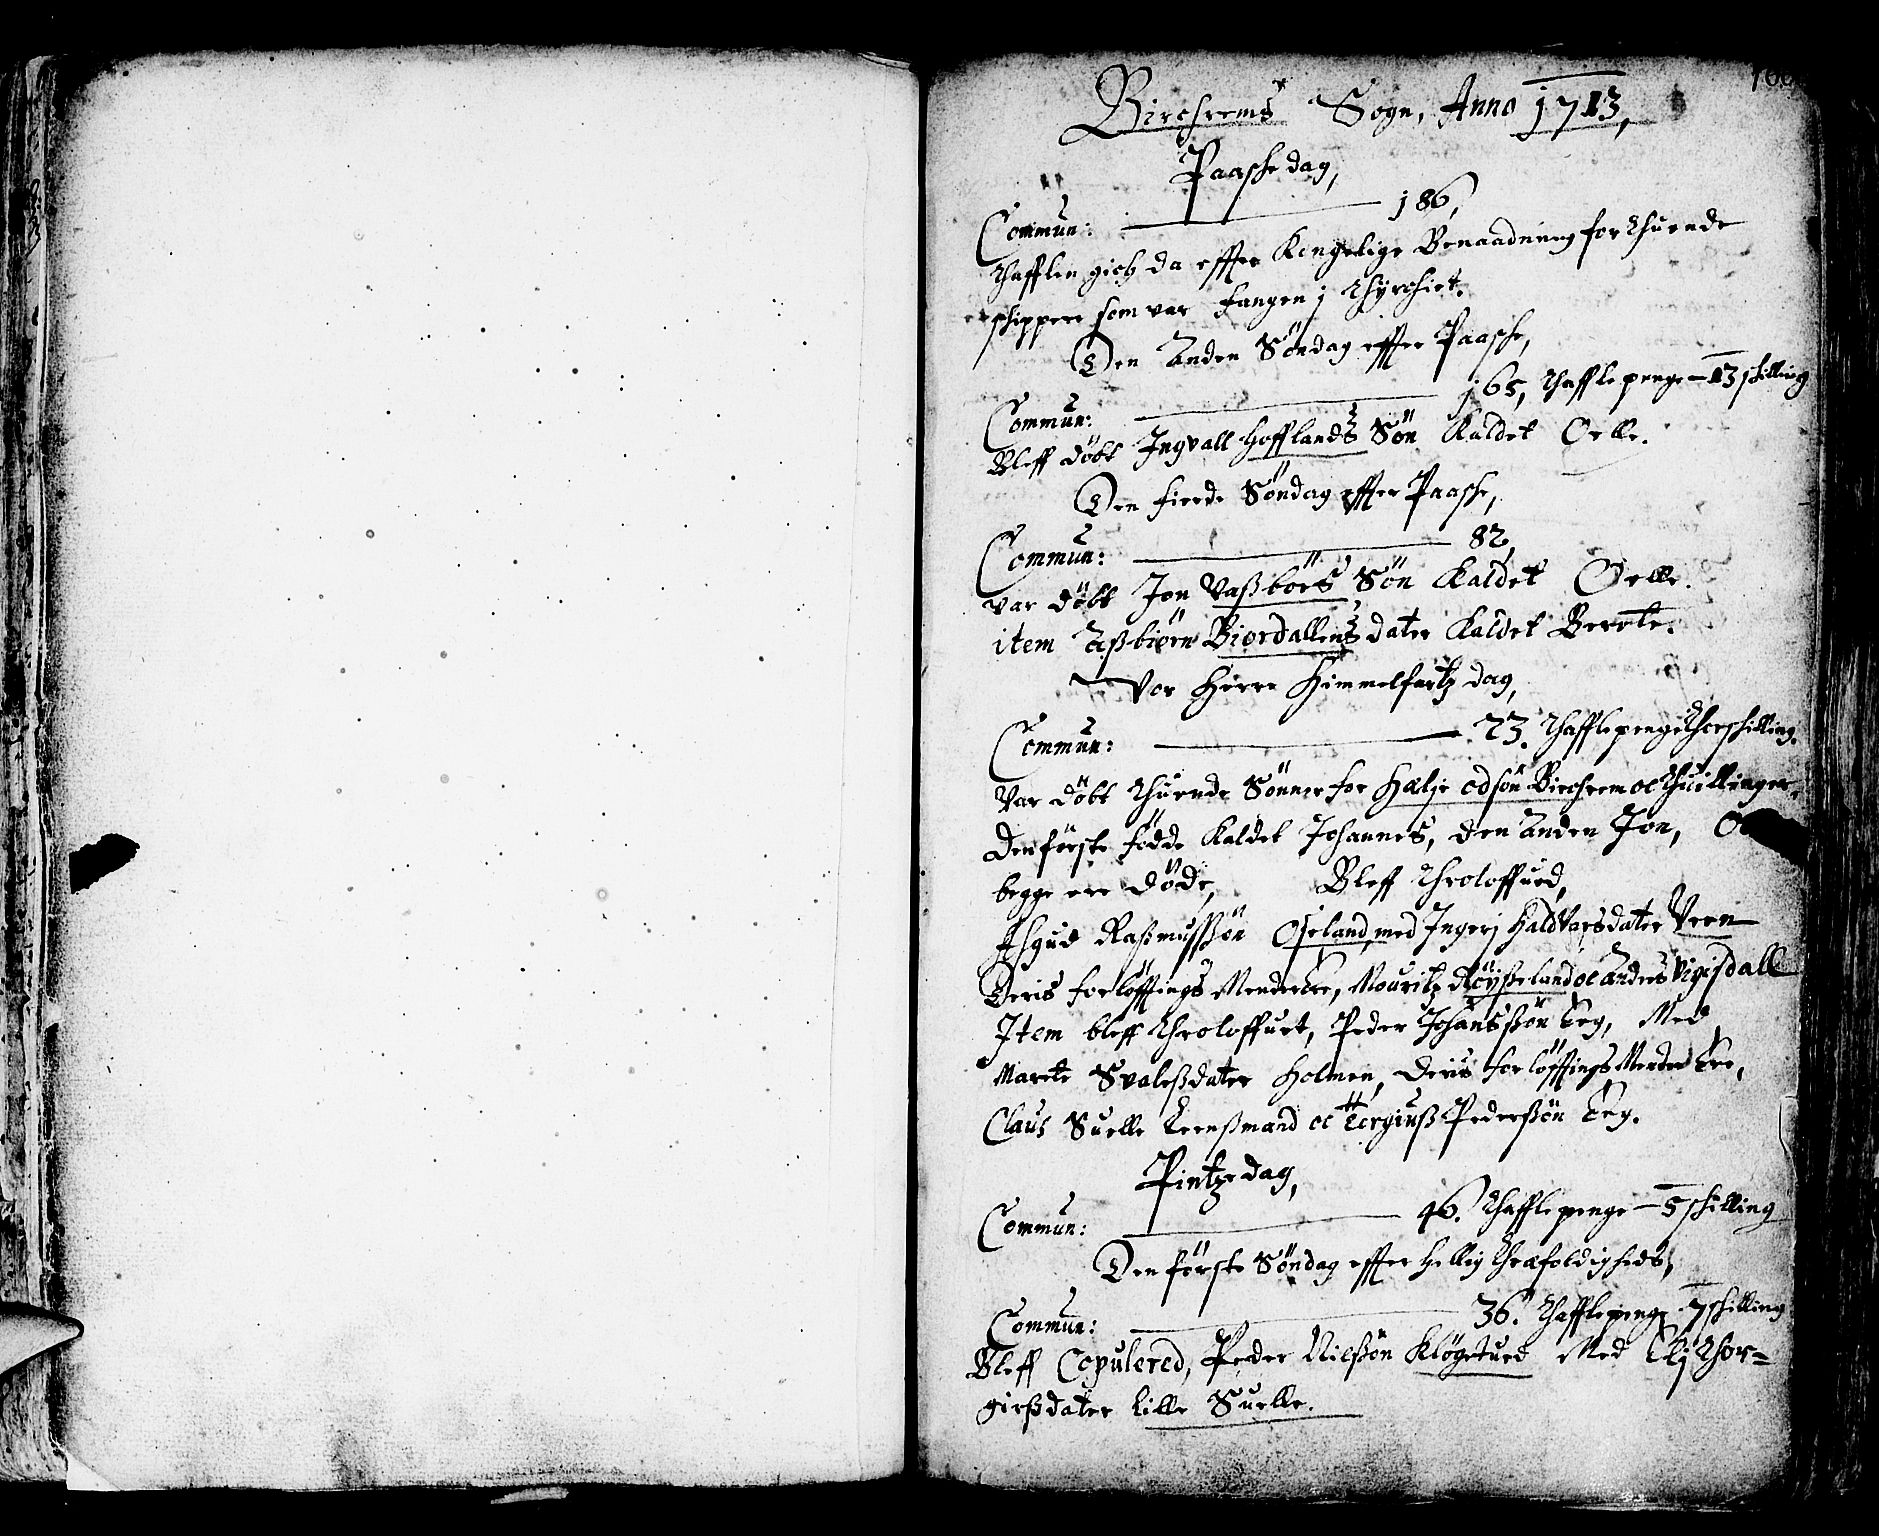 Birchrems Sogn, Anno 1713,
Paaskedag,
Commun: 186,
Thafflen gich da effter Kongelige Benaadning for thuende
schippere som var fangen j Thyrchiet.
Den Anden Söndag effter Paaske,
Commun: 165, Thafflepenge – 13 skilling
Bleff döbt Ingvall Hofflands Sön Kaldet Oelle.
Den fierde Söndag effter Paaske,
Commun: 82,
var döbt Jon Vaßböes Sön Kaldet Oelle.
item Aßbiörn Biordallens dater Kaldet Berete.
Vor Herre Himmelfartz dag,
Commun: 23. Thafflepenge Thorschilling.
Var döbt thuende Sönner for Hælje Odsön Birchrem oc thuillinger,
Den förste födde Kaldet Johannes, den Anden Jon,
begge ere döde, Bleff Throloffued,
Rasmusßön Oseland, med Ingeri Haldvarsdater Veen
Deris forlöfftings Mender Ere, Mouritz Röysseland oc Anders Vigisdall
Item bleff throloffuet, Peder Johansßön Eeg, Med
Marete Svaleßdater Holmen, Deris forlöfftings Mender Ere,
Claus Suelle Leenßmand oc Torgiuß Pederßön Eeg.
Pintzedag,
Commun: 46. Thafflepenge – 5 skilling
Den förste Söndag effter hellig Threfoldigheds,
Commun: 36. Thafflepenge 7 skilling
Bleff Copulered, Peder Nielßön Klögetued Med Elj Thor=
girßdater lille Suelle.